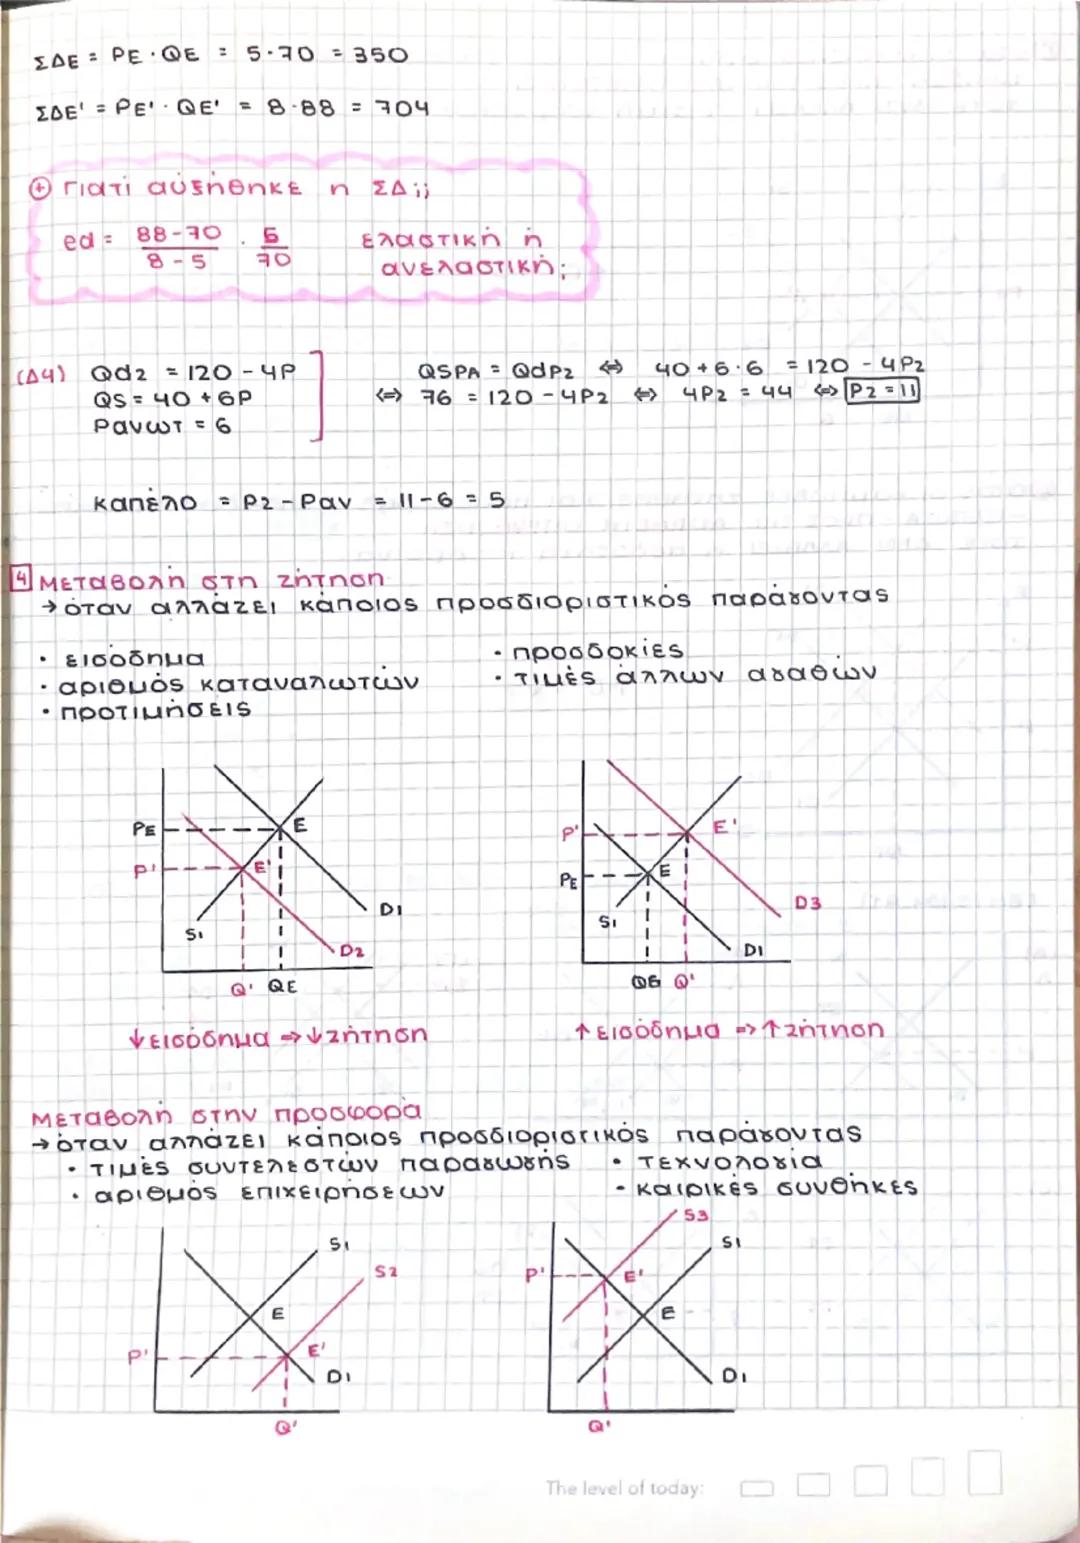 ΣΔΕ = PE · QE = 5·70 = 350
ΣΔΕ' = PE' · QE' = 8·88 = 704
+ Γιατί αυξήθηκε η ΣΔ;;
ed = 88-70 / 8-5 · 5 / 70 ελαστική ή ανελαστική;
(Δ4) Qd2 = 120 - 4P
QS = 40 + 6P
Pανωτ = 6
QSPA = QdP2 ⇔ 40+6·6 = 120 - 4P2
⇔ 76 = 120 - 4P2 ⇔ 4P2 = 44 ⇔ P2 = 11
καπέλο = P2 - Pαν = 11-6 = 5
4 Μεταβολή στη ζήτηση
→ όταν αλλάζει κάποιος προσδιοριστικός παράγοντας
• εισόδημα • προσδοκίες
• αριθμός καταναλωτών • τιμές άλλων αγαθών
• προτιμήσεις
PE E
P' E'
S1 D1
D2
Q' QE
↓ εισόδημα ⇒ ↓ ζήτηση
P' E'
PE E
S1 D3
D1
QE Q'
↑ εισόδημα ⇒ ↑ ζήτηση
Μεταβολή στην προσφορά
→ όταν αλλάζει κάποιος προσδιοριστικός παράγοντας
• τιμές συντελεστών παραγωγής • τεχνολογία
• αριθμός επιχειρήσεων • καιρικές συνθήκες
S1
S2
E
P' E'
D1
Q'
S3
S1
P' E'
E
D1
Q'
The level of today: